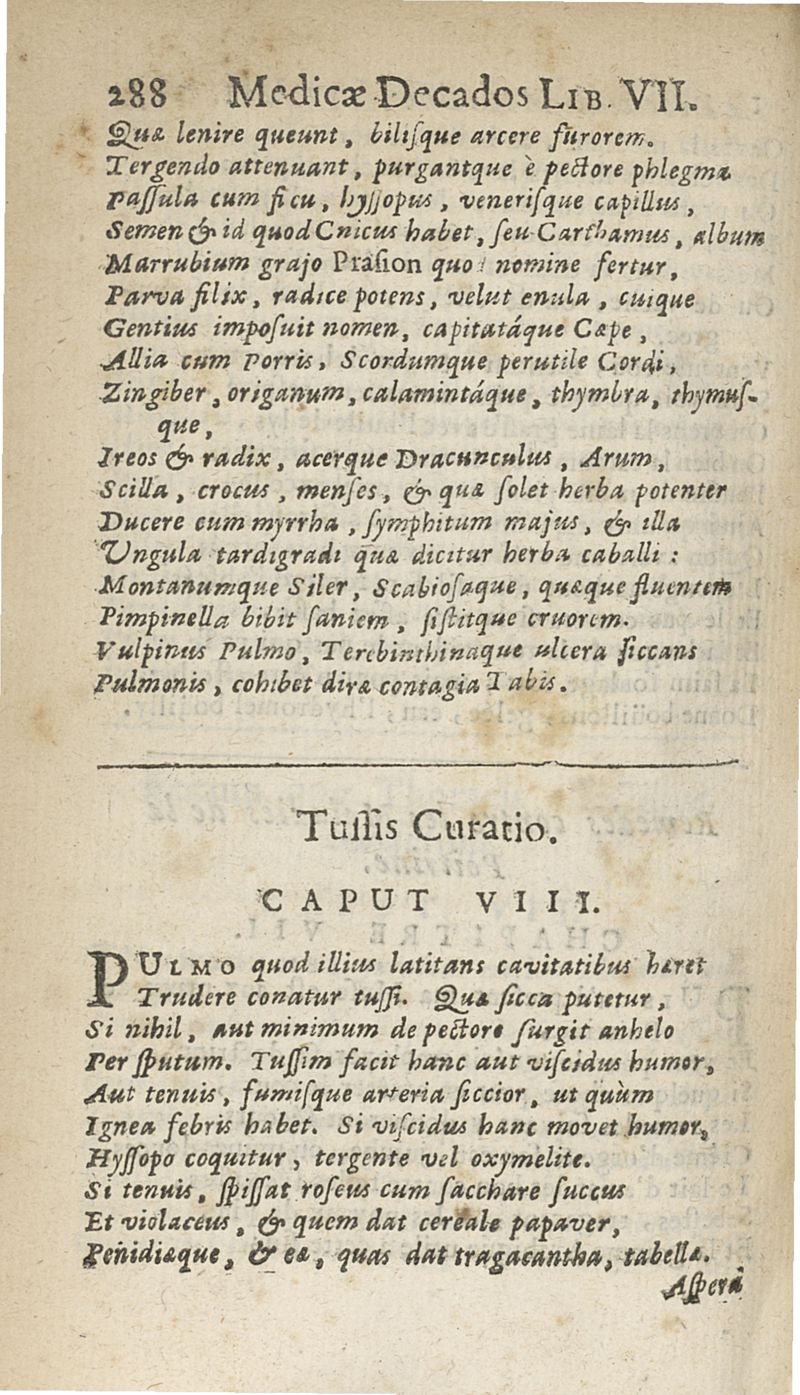 288 Medicæ Decados LIB. VII.
Quæ lenire queunt, bilisque arcere furorem.
Tergendo attenuant, purgantque è pectore phlegma
Passula cum ficu, hyssopus, venerisque capillus,
Semen & id quod Cnicus habet, seu Carthamus, album
Marrubium grajo Prasion quod nomine fertur,
Parva filix, radice potens, velut enula, cuique
Gentius imposuit nomen, capitatáque Cæpe,
Allia cum Porris, Scordumque perutile Cordi,
Zingiber, origanum, calamintáque, thymbra, thymus-
que,
Ireos & radix, acerque Dracunculus, Arum,
Scilla, crocus, menses, & quæ solet herba potenter
Ducere cum myrrha, symphitum majus, & illa
Ungula tardigradi quæ dicitur herba caballi:
Montanumque Siler, Scabiosaque, quæque fluentem
Pimpinella bibit saniem, sistitque cruorem.
Vulpinus Pulmo, Terebinthinaque ulcera siccans
Pulmonis, cohibet diræ contagia Tabis.
Tussis Curatio.
CAPUT VIII.
PULMO quod illius latitans cavitatibus hæret
Trudere conatur tussi. Quæ sicca putetur,
Si nihil, aut minimum de pectore surgit anhelo
Per sputum. Tussim facit hanc aut viscidus humor,
Aut tenuis, fumisque arteria siccior, ut quùm
Ignea febris habet. Si viscidus hanc movet humor,
Hyssopo coquitur, tergente vel oxymelite.
Si tenuis, spissat roseus cum sacchare succus
Et violaceus, & quem dat cereale papaver,
Penidiæque, & eæ, quas dat tragacantha, tabellæ.
Aspera